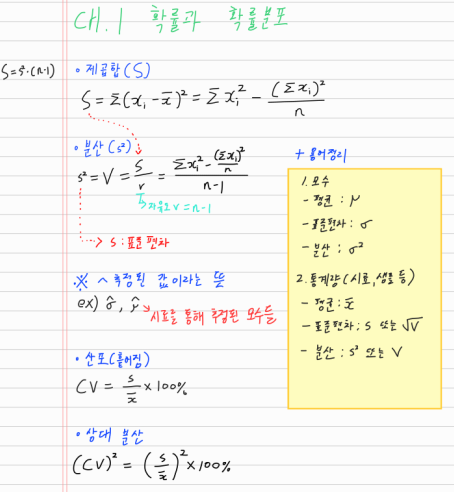 CH.1 확률과 확률분포
S=s²·(n-1)
• 제곱합(S)
S = Σ(xᵢ - x̄)² = Σxᵢ² - (Σxᵢ)²/n
• 분산(s²)
s² = V = S/ν = (Σxᵢ² - (Σxᵢ)²/n)/(n-1)
↳자유도 ν = n-1
→ s : 표준편차
※ ^ 추정된 값이라는 뜻
ex) σ̂, μ̂
↘시료를 통해 추정된 모수들
• 산포(흩어짐)
CV = s/x̄ × 100%
• 상대 분산
(CV)² = (s/x̄)² × 100%
+ 용어정리
1. 모수
- 평균 : μ
- 표준편차 : σ
- 분산 : σ²
2. 통계량 (시료, 샘플 등)
- 평균 : x̄
- 표준편차 : s 또는 √V
- 분산 : s² 또는 V